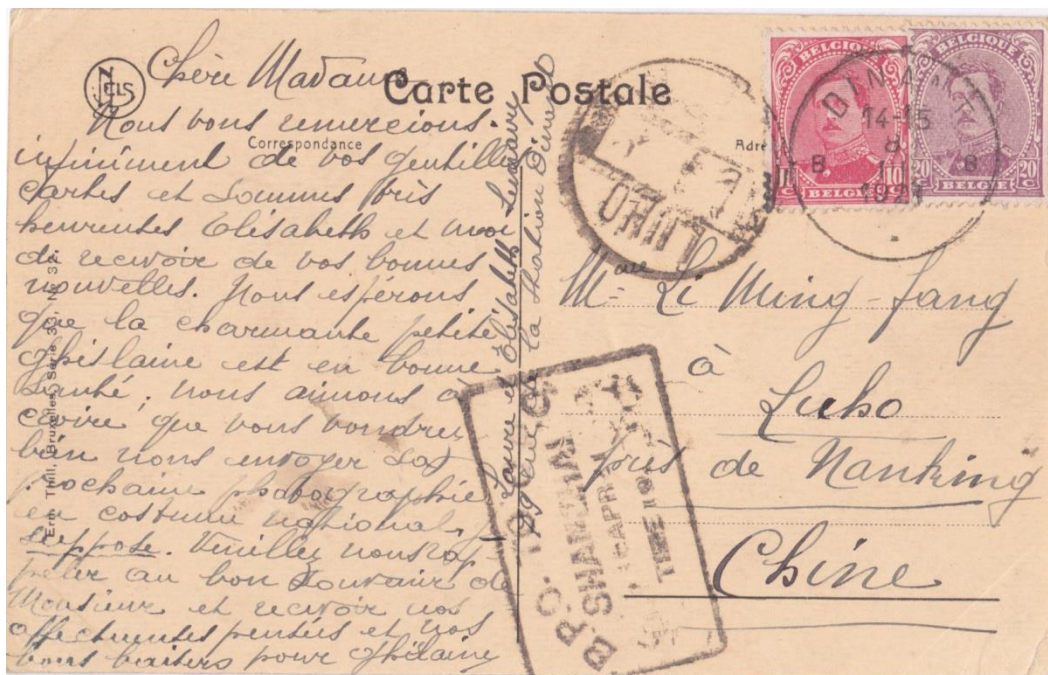 NELS
Carte Postale
Correspondance
Adre
Chère Madame
Nous vous remercions
infiniment de vos gentilles
cartes et sommes très
heureuses Elisabeth et moi
de recevoir de vos bonnes
nouvelles. Nous espérons
que la charmante petite
Ghislaine est en bonne
santé. nous aimons à
croire que vous voudrez
bien nous envoyer sa
prochaine photographie
en costume national, je
suppose. Veuillez nous rap-
peler au bon souvenir de
Monsieur et recevoir nos
affectueuses pensées et nos
bons baisers pour Ghislaine
Laure et Elisabeth Lemaire
29 de la Station Dinant
Ern. Thill, Bruxelles, Série 33, No 32.
BELGIQUE
10 C 10 C
BELGIE
BELGIQUE
20 C 20 C
BELGIE
DINANT
14-15
8
8 8
1921
LUHO
B.P.O.
SHANGHAI
Mme Li Ming-Fang
à
Luho
près de Nanking
Chine